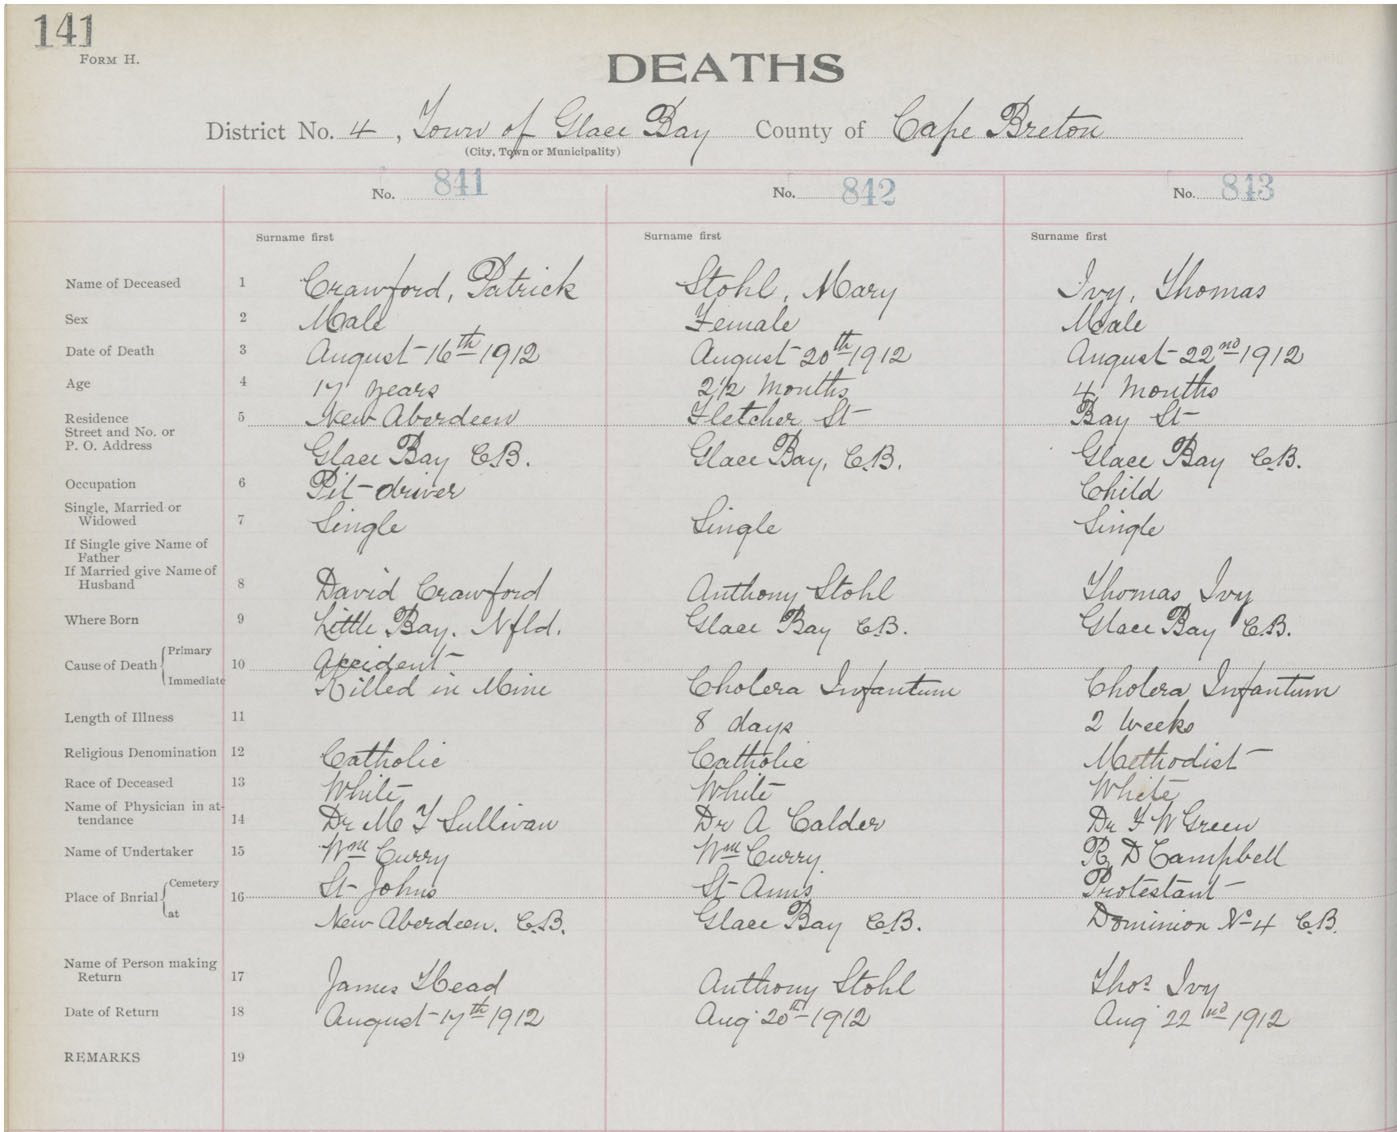 141
FORM H.
DEATHS
District No. 4, Town of Glace Bay County of Cape Breton
(City, Town or Municipality)
No. 841 No. 842 No. 843
Surname first Surname first Surname first
Name of Deceased 1 Crawford, Patrick Stohl, Mary Ivy, Thomas
Sex 2 Male Female Male
Date of Death 3 August 16th 1912 August 20th 1912 August 22nd 1912
Age 4 17 years 2 1/2 Months 4 Months
Residence 5 New Aberdeen Fletcher St Bay St
Street and No. or
P. O. Address Glace Bay C.B. Glace Bay, C.B. Glace Bay C.B.
Occupation 6 Pit-driver Child
Single, Married or
Widowed 7 Single Single Single
If Single give Name of
Father
If Married give Name of
Husband 8 David Crawford Anthony Stohl Thomas Ivy
Where Born 9 Little Bay. Nfld. Glace Bay C.B. Glace Bay C.B.
Primary
Cause of Death 10 Accident
Immediate Killed in Mine Cholera Infantum Cholera Infantum
Length of Illness 11 8 days 2 weeks
Religious Denomination 12 Catholic Catholic Methodist
Race of Deceased 13 White White White
Name of Physician in at-
tendance 14 Dr M T Sullivan Dr A Calder Dr F W Green
Name of Undertaker 15 Wm Curry Wm Curry R D Campbell
Cemetery St Johns St Anns Protestant
Place of Bnrial 16
at New Aberdeen. C.B. Glace Bay C.B. Dominion No 4 C.B.
Name of Person making
Return 17 James Head Anthony Stohl Thos Ivy
Date of Return 18 August 17th 1912 Aug 20th 1912 Aug 22nd 1912
REMARKS 19